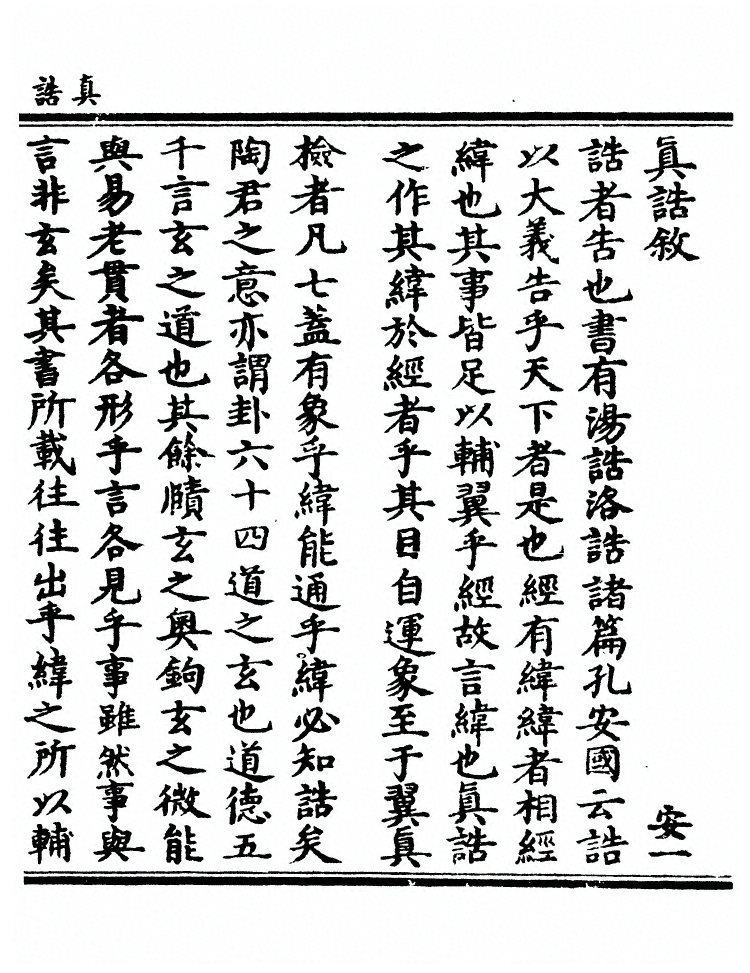 真誥
真誥敘 安一
誥者告也書有湯誥洛誥諸篇孔安國云誥
以大義告乎天下者是也經有緯緯者相經
緯也其事皆足以輔翼乎經故言緯也真誥
之作其緯於經者乎其目自運象至于翼真
檢者凡七蓋有象乎緯能通乎緯必知誥矣
陶君之意亦謂卦六十四道之玄也道德五
千言玄之道也其餘賾玄之奧鉤玄之微能
與易老貫者各形乎言各見乎事雖然事與
言非玄矣其書所載往往出乎緯之所以輔